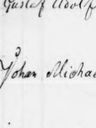 Gustaf Adolf
Johan Micha